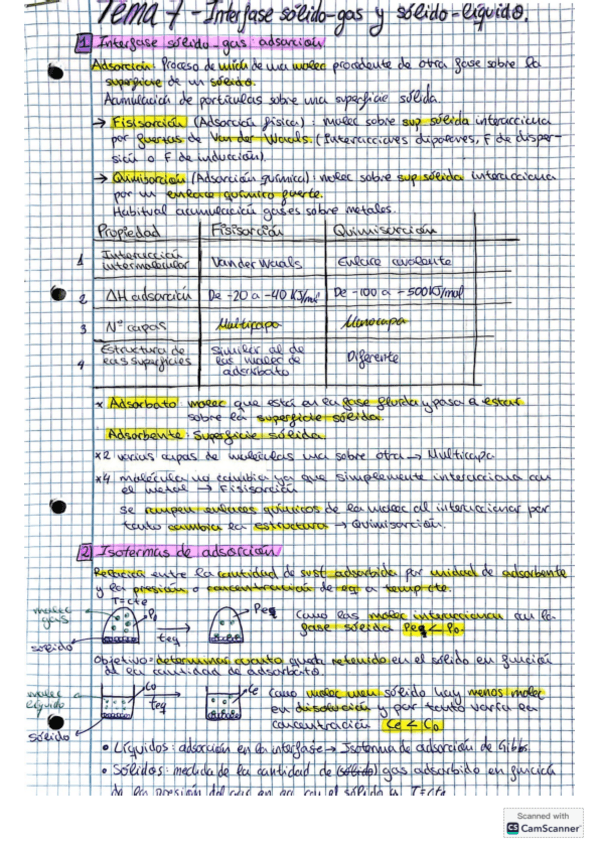 Tema 7 - Interfase sólido-gas y sólido-líquido.
1 Interfase sólido-gas adsorción
Adsorción: Proceso de unión de una molec procedente de otra fase sobre la
superficie de un sólido.
Acumulación de partículas sobre una superficie sólida.
→ Fisisorción (Adsorción física): molec sobre sup sólida interacciona
por fuerzas de Van der Waals. (Interacciones dipolares, F de disper-
sión o F de inducción).
→ Quimisorción (Adsorción química): molec sobre sup sólida interacciona
por un enlace químico fuerte.
Habitual acumulación gases sobre metales.
Propiedad Fisisorción Quimisorción
1 Interacción intermolecular Van der Waals Enlace covalente
2 ΔH adsorción De -20 a -40 KJ/mol De -100 a -500 KJ/mol
3 Nº capas Multicapa Monocapa
4 Estructura de las superficies Similar al de las molec de adsorbato Diferente
* Adsorbato molec que está en la fase fluida y pasa a estar
sobre la superficie sólida.
Adsorbente: Superficie sólida
*2 varias capas de moléculas una sobre otra → Multicapa
*4 molécula no cambia ya que simplemente interacciona con
el metal → Fisisorción
se rompen enlaces químicos de la molec al interaccionar por
tanto cambia la estructura → Quimisorción.
2 Isotermas de adsorción
Relación entre la cantidad de sust adsorbida por unidad de adsorbente
y la presión o concentración de eq a temp cte.
T=cte
molec gas P₀ Peq Como las molec interaccionan con la
sólido teq fase sólida Peq < P₀.
Objetivo: determinar cuanto queda retenido en el sólido en función
de la cantidad de adsorbato.
molec líquido C₀ teq Ce Como molec van sólido hay menos molec
en disolución y por tanto varía la
sólido concentración Ce < C₀
• Líquidos: adsorción en la interfase → Isoterma de adsorción de Gibbs
• Sólidos: medida de la cantidad de (sólido) gas adsorbido en función
de la presión del gas en eq con el sólido a T=cte
Scanned with
CS CamScanner